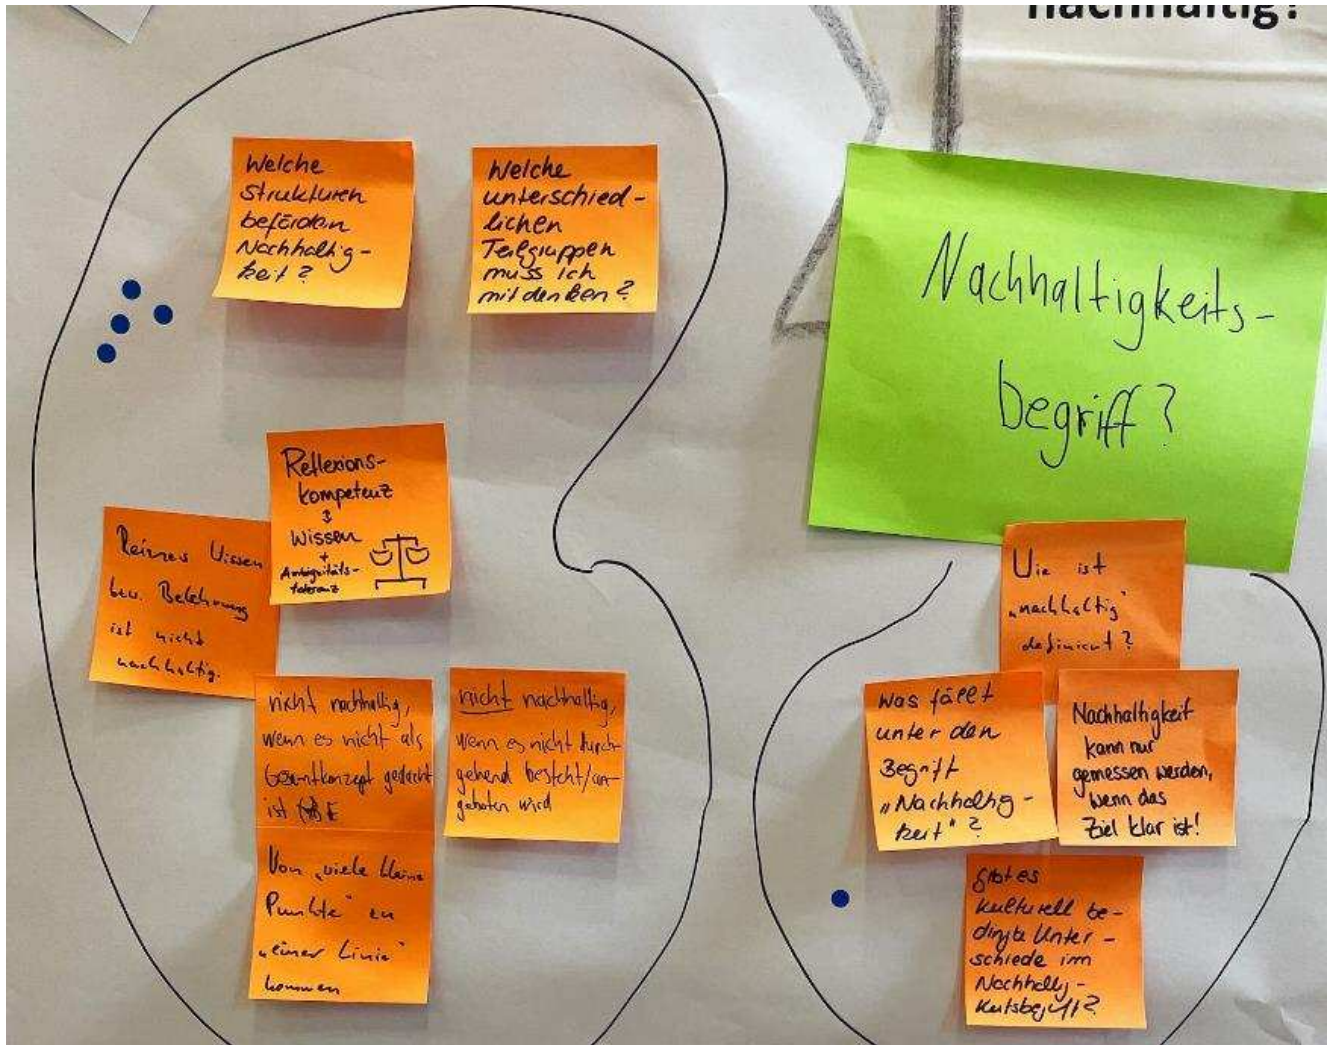 nachhaltig?
Welche
Strukturen
befördern
Nachhaltig-
keit?
Welche
unterschied-
lichen
Teilgruppen
muss ich
mitdenken?
Reflexions-
kompetenz
Wissen
+
Ambiguitäts-
toleranz
Reines Wissen
bzw. Belehrung
ist nicht
nachhaltig.
nicht nachhaltig,
wenn es nicht als
Gesamtkonzept gedacht
ist
nicht nachhaltig,
wenn es nicht durch-
gehend besteht/an-
geboten wird
Von „viele kleine
Punkte" zu
„einer Linie"
kommen
Nachhaltigkeits-
begriff?
Wie ist
„nachhaltig"
definiert?
Was fällt
unter den
Begriff
„Nachhaltig-
keit"?
Nachhaltigkeit
kann nur
gemessen werden,
wenn das
Ziel klar ist!
Gibt es
kulturell be-
dingte Unter-
schiede im
Nachhaltig-
keitsbegriff?